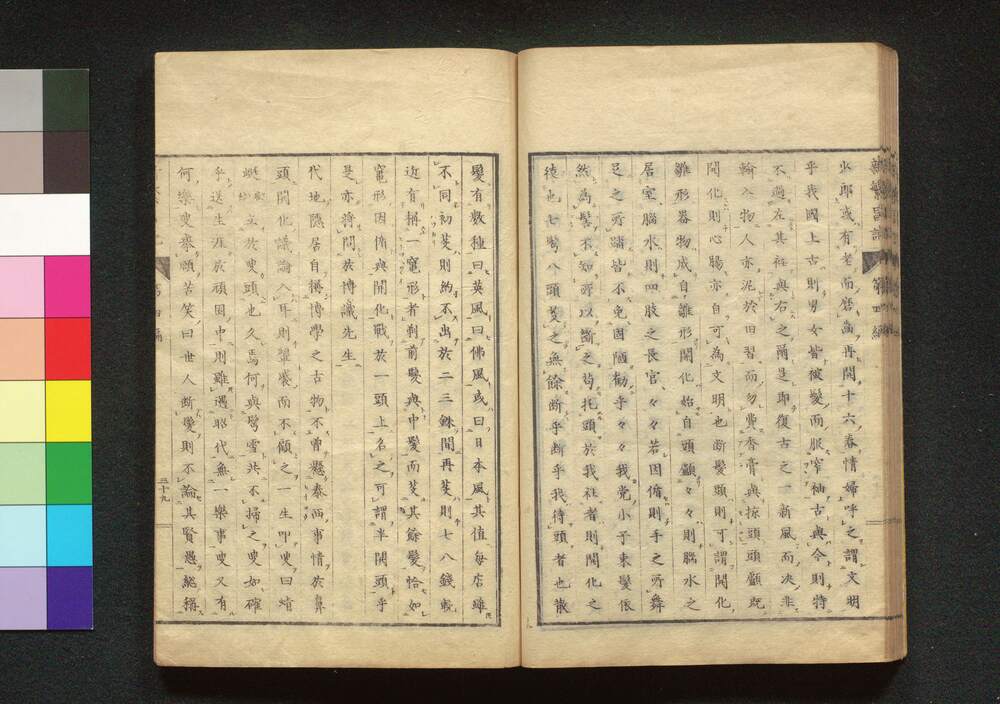 少郎或有老而磨齒再開十六春情婦呼之謂文明
乎我國上古則男女皆被髮而服窄袖古典今則特
不過左其衽與右之爾是即復古之一新風而決非
輸入物人亦泥於旧習而勿費香膏與掠頭頭顱既
開化則心腸亦自可為文明也断髮頭則可謂開化
雛形器物成自雛形開化始自頭顱々々則腦水之
居室腦水則四肢之長官々々若因循則手之所舞
足之所蹈皆不免固陋勸乎々々我党小子束髮依
然為髻不知所以斷之苟托頭於我社者則開化之
捷也七鬢八頭芟之無餘断乎断乎我待頭者也散
髮有數種曰英風曰佛風或曰日本風其值每店雖
不同初芟則約不出於二三銖間再芟則七八錢較
近有稱一竈形者剃前髮與中髮而芟其餘髮恰如
竈形因循與開化戰於一頭上名之可謂半開頭乎
是亦将問於博識先生
代地隱居自稱博學之古物不曾懸泰西事情於鼻
頭開化議論入耳則顰蹙而不顧之一生叩叟曰蜻
蜓立於叟頭也久焉何與鬢雪共不掃之叟如確
乎送生涯於頑固中則雖遇昭代無一樂事叟又有
何樂叟蹙額苦笑曰世人断髮則不論其賢愚総稱
第四編
三十九